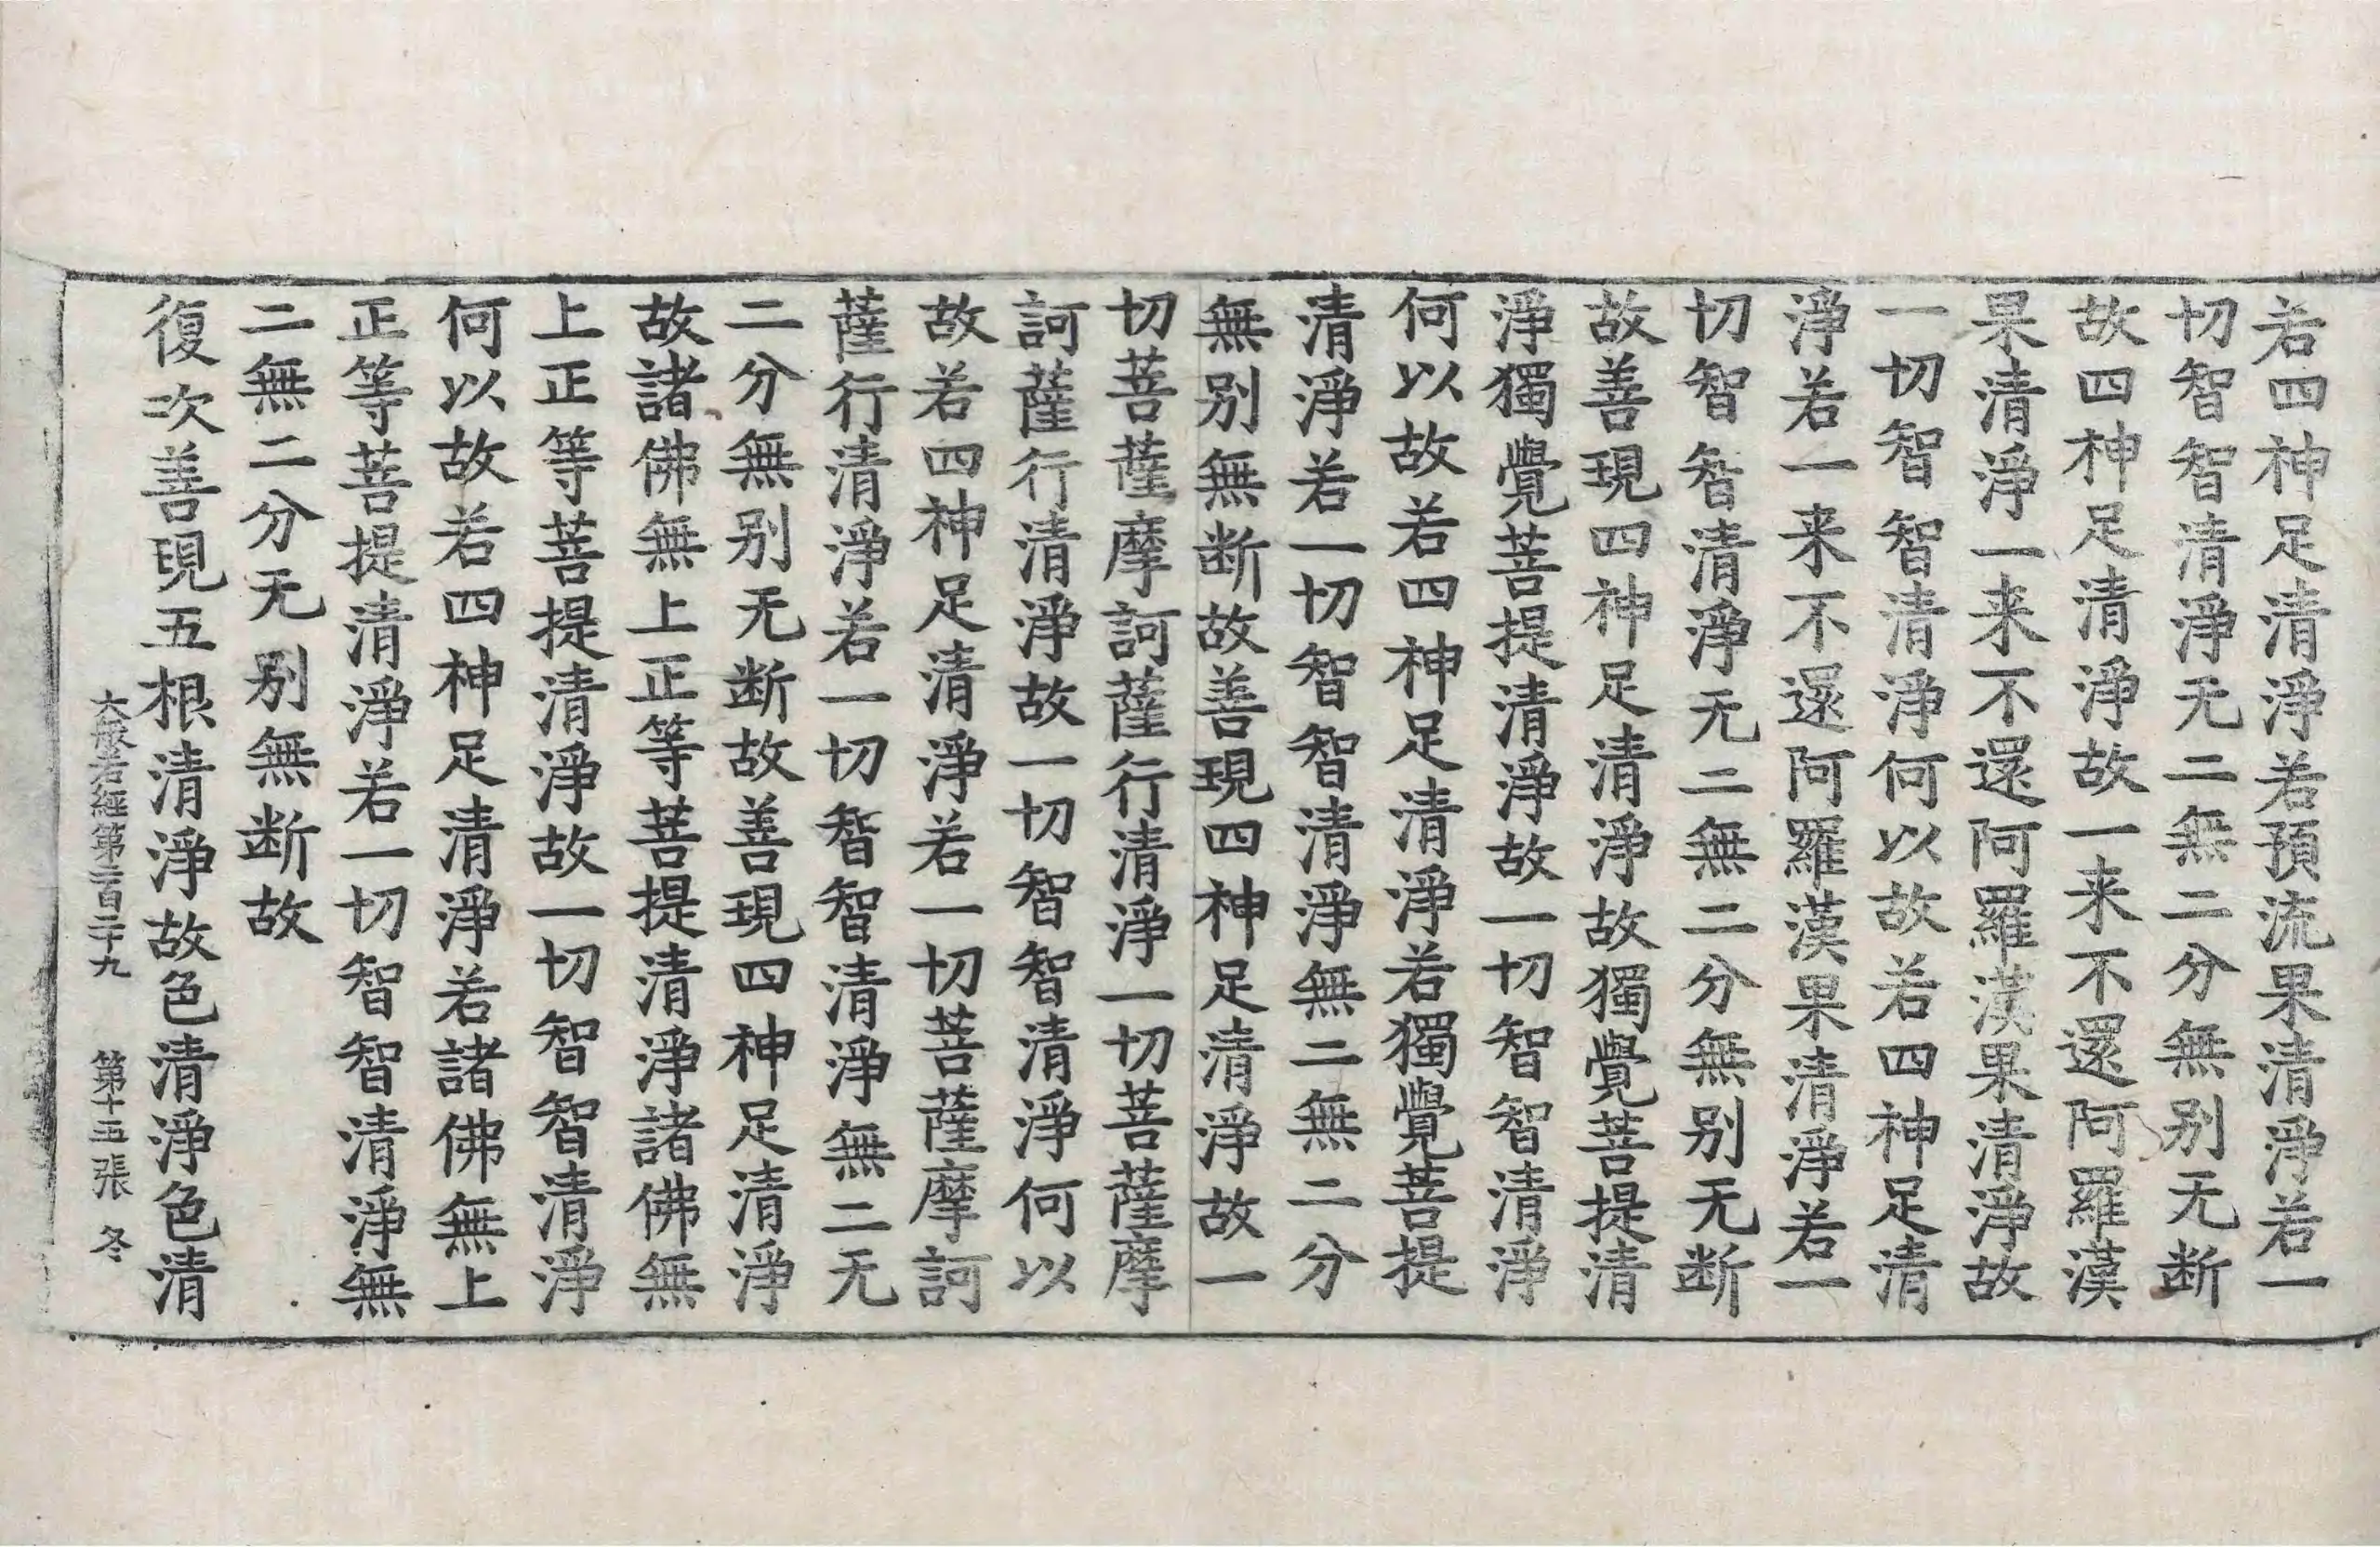 若四神足清淨若預流果清淨若一
切智智清淨无二無二分無別无断
故四神足清淨故一来不還阿羅漢
果清淨一来不還阿羅漢果清淨故
一切智智清淨何以故若四神足清
淨若一来不還阿羅漢果清淨若一
切智智清淨无二無二分無別无断
故善現四神足清淨故獨覺菩提清
淨獨覺菩提清淨故一切智智清淨
何以故若四神足清淨若獨覺菩提
清淨若一切智智清淨無二無二分
無別無断故善現四神足清淨故一
切菩薩摩訶薩行清淨一切菩薩摩
訶薩行清淨故一切智智清淨何以
故若四神足清淨若一切菩薩摩訶
薩行清淨若一切智智清淨無二无
二分無別无断故善現四神足清淨
故諸佛無上正等菩提清淨諸佛無
上正等菩提清淨故一切智智清淨
何以故若四神足清淨若諸佛無上
正等菩提清淨若一切智智清淨無
二無二分无別無断故
復次善現五根清淨故色清淨色清
大般若經第二百二十九 第十五張 冬